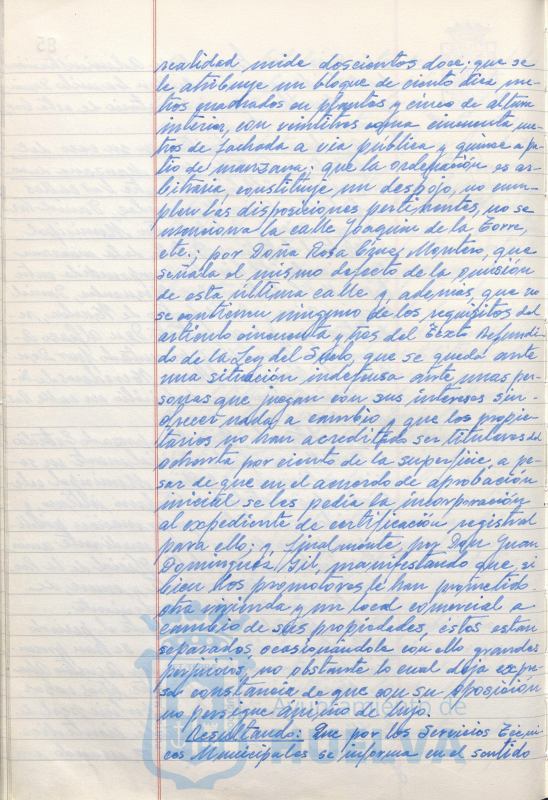 realidad mide doscientos doce; que se
le atribuye un bloque de ciento diez me-
tros cuadrados en plantas y cinco de altura
interior, con veintitres coma cincuenta me-
tros de fachada a via publica y quince a pa-
tio de manzana; que la ordenación es ar-
bitraria, constituye un despojo, no cum-
plen las disposiciones pertinentes, no se
menciona la calle Joaquin de la Torre,
etc.; por Doña Rosa Montero, que
señala el mismo defecto de la omisión
de esta última calle y además, que no
se contienen ninguno de los requisitos del
articulo cincuenta y tres del Texto Refundi-
do de la Ley del Suelo, que se queda ante
una situación indefensa ante unas per-
sonas que juegan con sus intereses sin
ofrecer nada a cambio y que los propie-
tarios no han acreditado ser titulares del
ochenta por ciento de la superficie, a pe-
sar de que en el acuerdo de aprobación
inicial se les pedía la incorporación
al expediente de certificación registral
para ello; y, finalmente, por Don Juan
Dominguez Gil, manifestando que, si
bien los promotores le han prometido
otra vivienda y un local comercial a
cambio de sus propiedades, éstos estan
separados ocasionándole con ello grandes
perjuicios, no obstante lo cual deja expre-
sa constancia de que con su oposición
no persigue ánimo de lujo.
Resultando: Que por los Servicios Técni-
cos Municipales se informa en el sentido
Ayuntamiento de
HUELVA
85